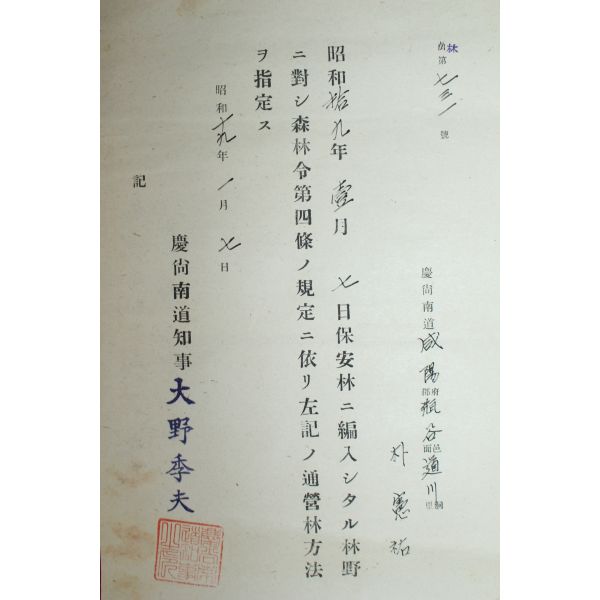 林第七三一號
慶尙南道咸陽郡府瓶谷面邑道川洞里
朴憲祐
昭和拾九年壹月七日保安林ニ編入シタル林野
ニ對シ森林令第四條ノ規定ニ依リ左記ノ通營林方法
ヲ指定ス
昭和十九年一月七日
慶尙南道知事大野季夫
記